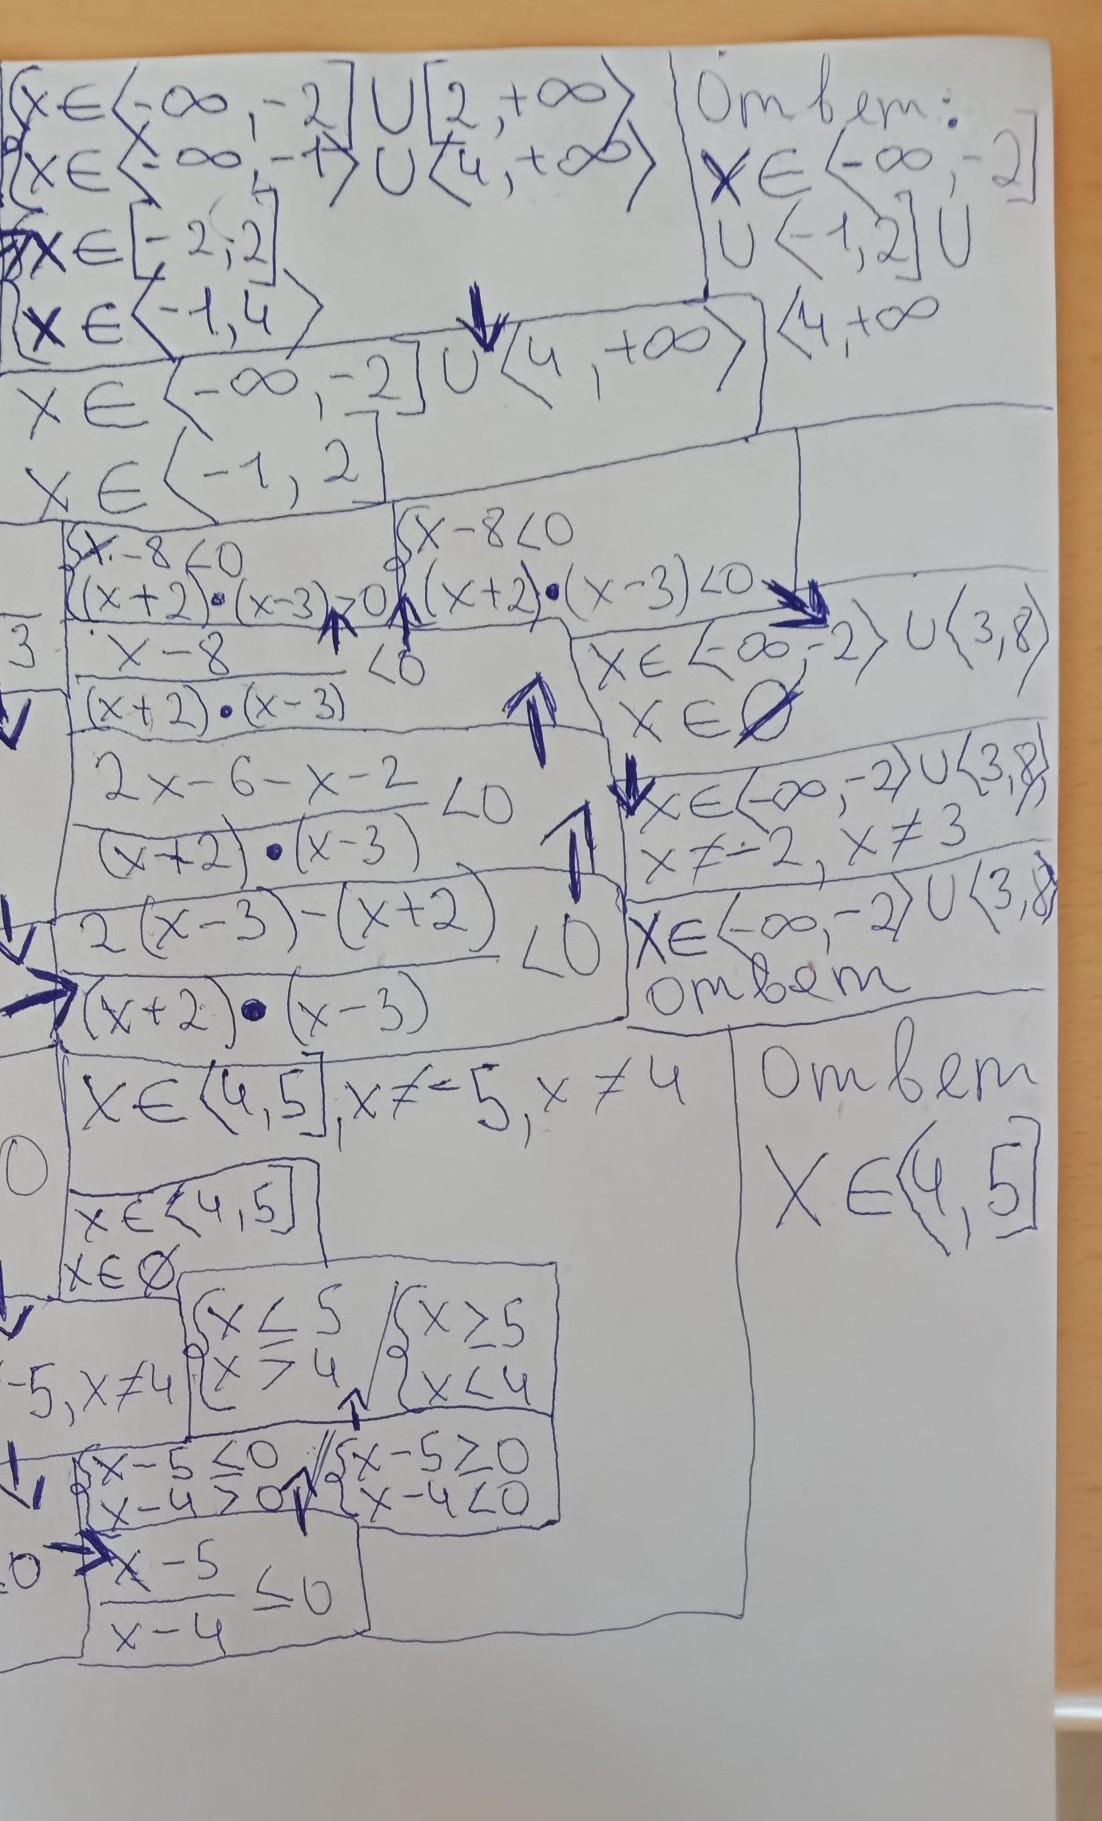 {x∈⟨-∞,-2]∪[2,+∞⟩
{x∈⟨-∞,-1⟩∪⟨4,+∞⟩
{x∈[-2,2]
{x∈⟨-1,4⟩
Ответ:
x∈⟨-∞,-2]
∪⟨-1,2]∪
⟨4,+∞
x∈⟨-∞,-2]∪⟨4,+∞⟩
x∈⟨-1,2]
{x-8<0
(x+2)•(x-3)>0
{x-8<0
(x+2)•(x-3)<0
3
x-8
(x+2)•(x-3)
<0
x∈⟨-∞,-2⟩∪⟨3,8⟩
x∈∅
2x-6-x-2
(x+2)•(x-3)
<0
x∈⟨-∞,-2⟩∪⟨3,8⟩
x≠-2, x≠3
2(x-3)-(x+2)
(x+2)•(x-3)
<0
x∈⟨-∞,-2⟩∪⟨3,8⟩
ответ
x∈⟨4,5], x≠-5, x≠4
Ответ
x∈⟨4,5]
0
x∈⟨4,5]
x∈∅
{x≤5
x>4
/{x≥5
x<4
-5, x≠4
{x-5≤0
x-4>0
//{x-5≥0
x-4<0
x-5
x-4
≤0